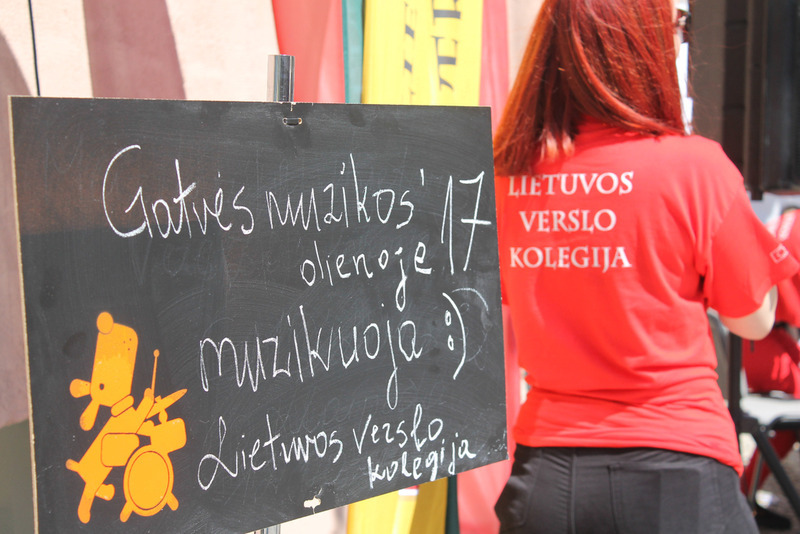 Gatvės muzikos '17
dienoje
muzikuoja :)
Lietuvos verslo
kolegija
LIETUVOS
VERSLO
KOLEGIJA